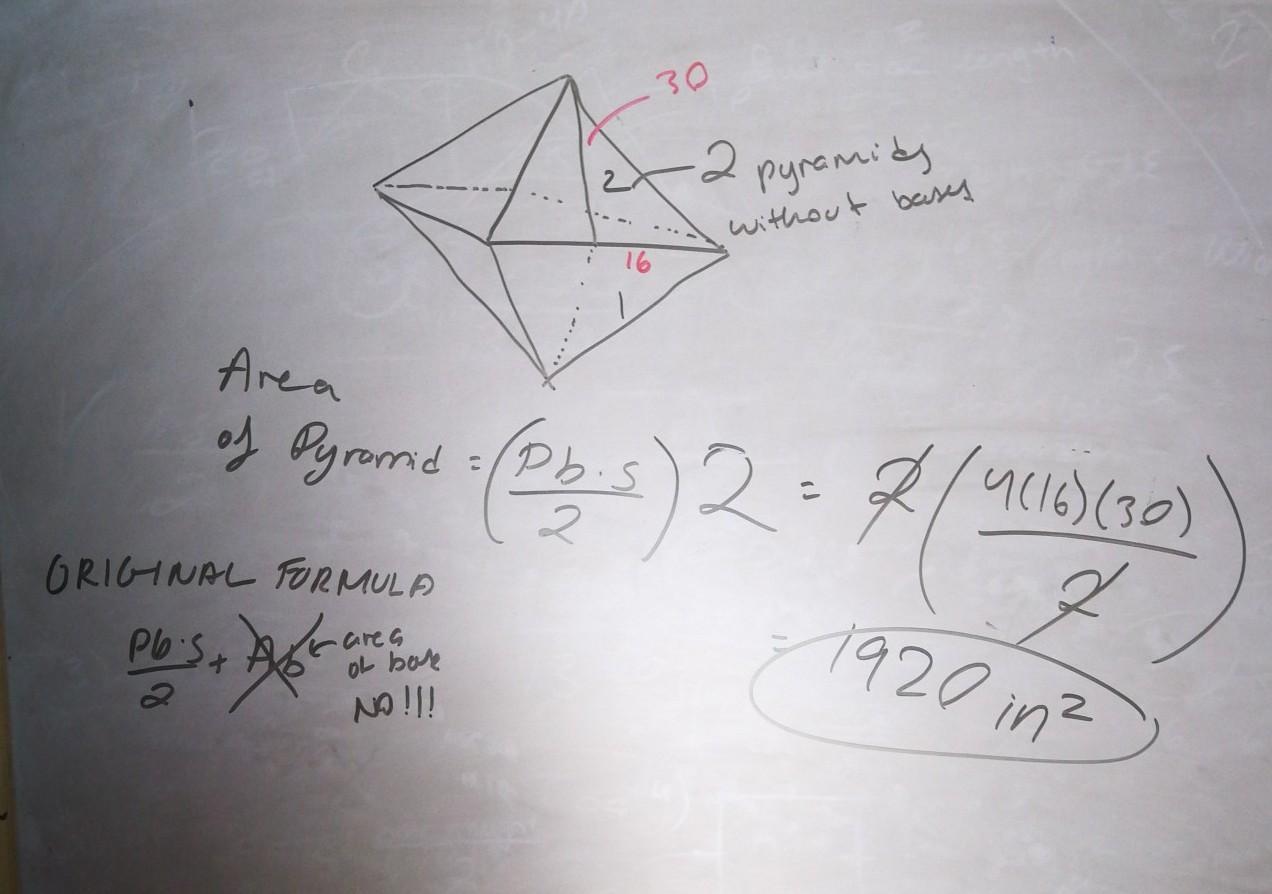 30
2
2 pyramids
without bases
16
1
Area
of Pyramid = (Pb·s/2) 2 = 2 (4(16)(30)/2)
ORIGINAL FORMULA
Pb·s/2 + Ab ← area
of base
NO!!!
= 1920 in²